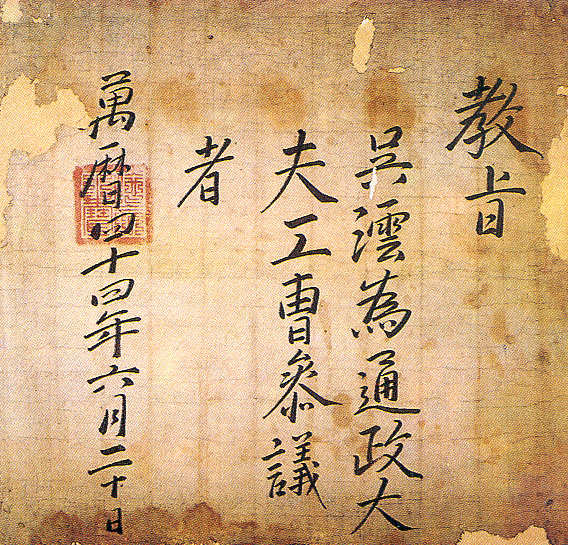 教旨
吳澐為通政大
夫工曺叅議
者
萬曆四十四年六月二十日